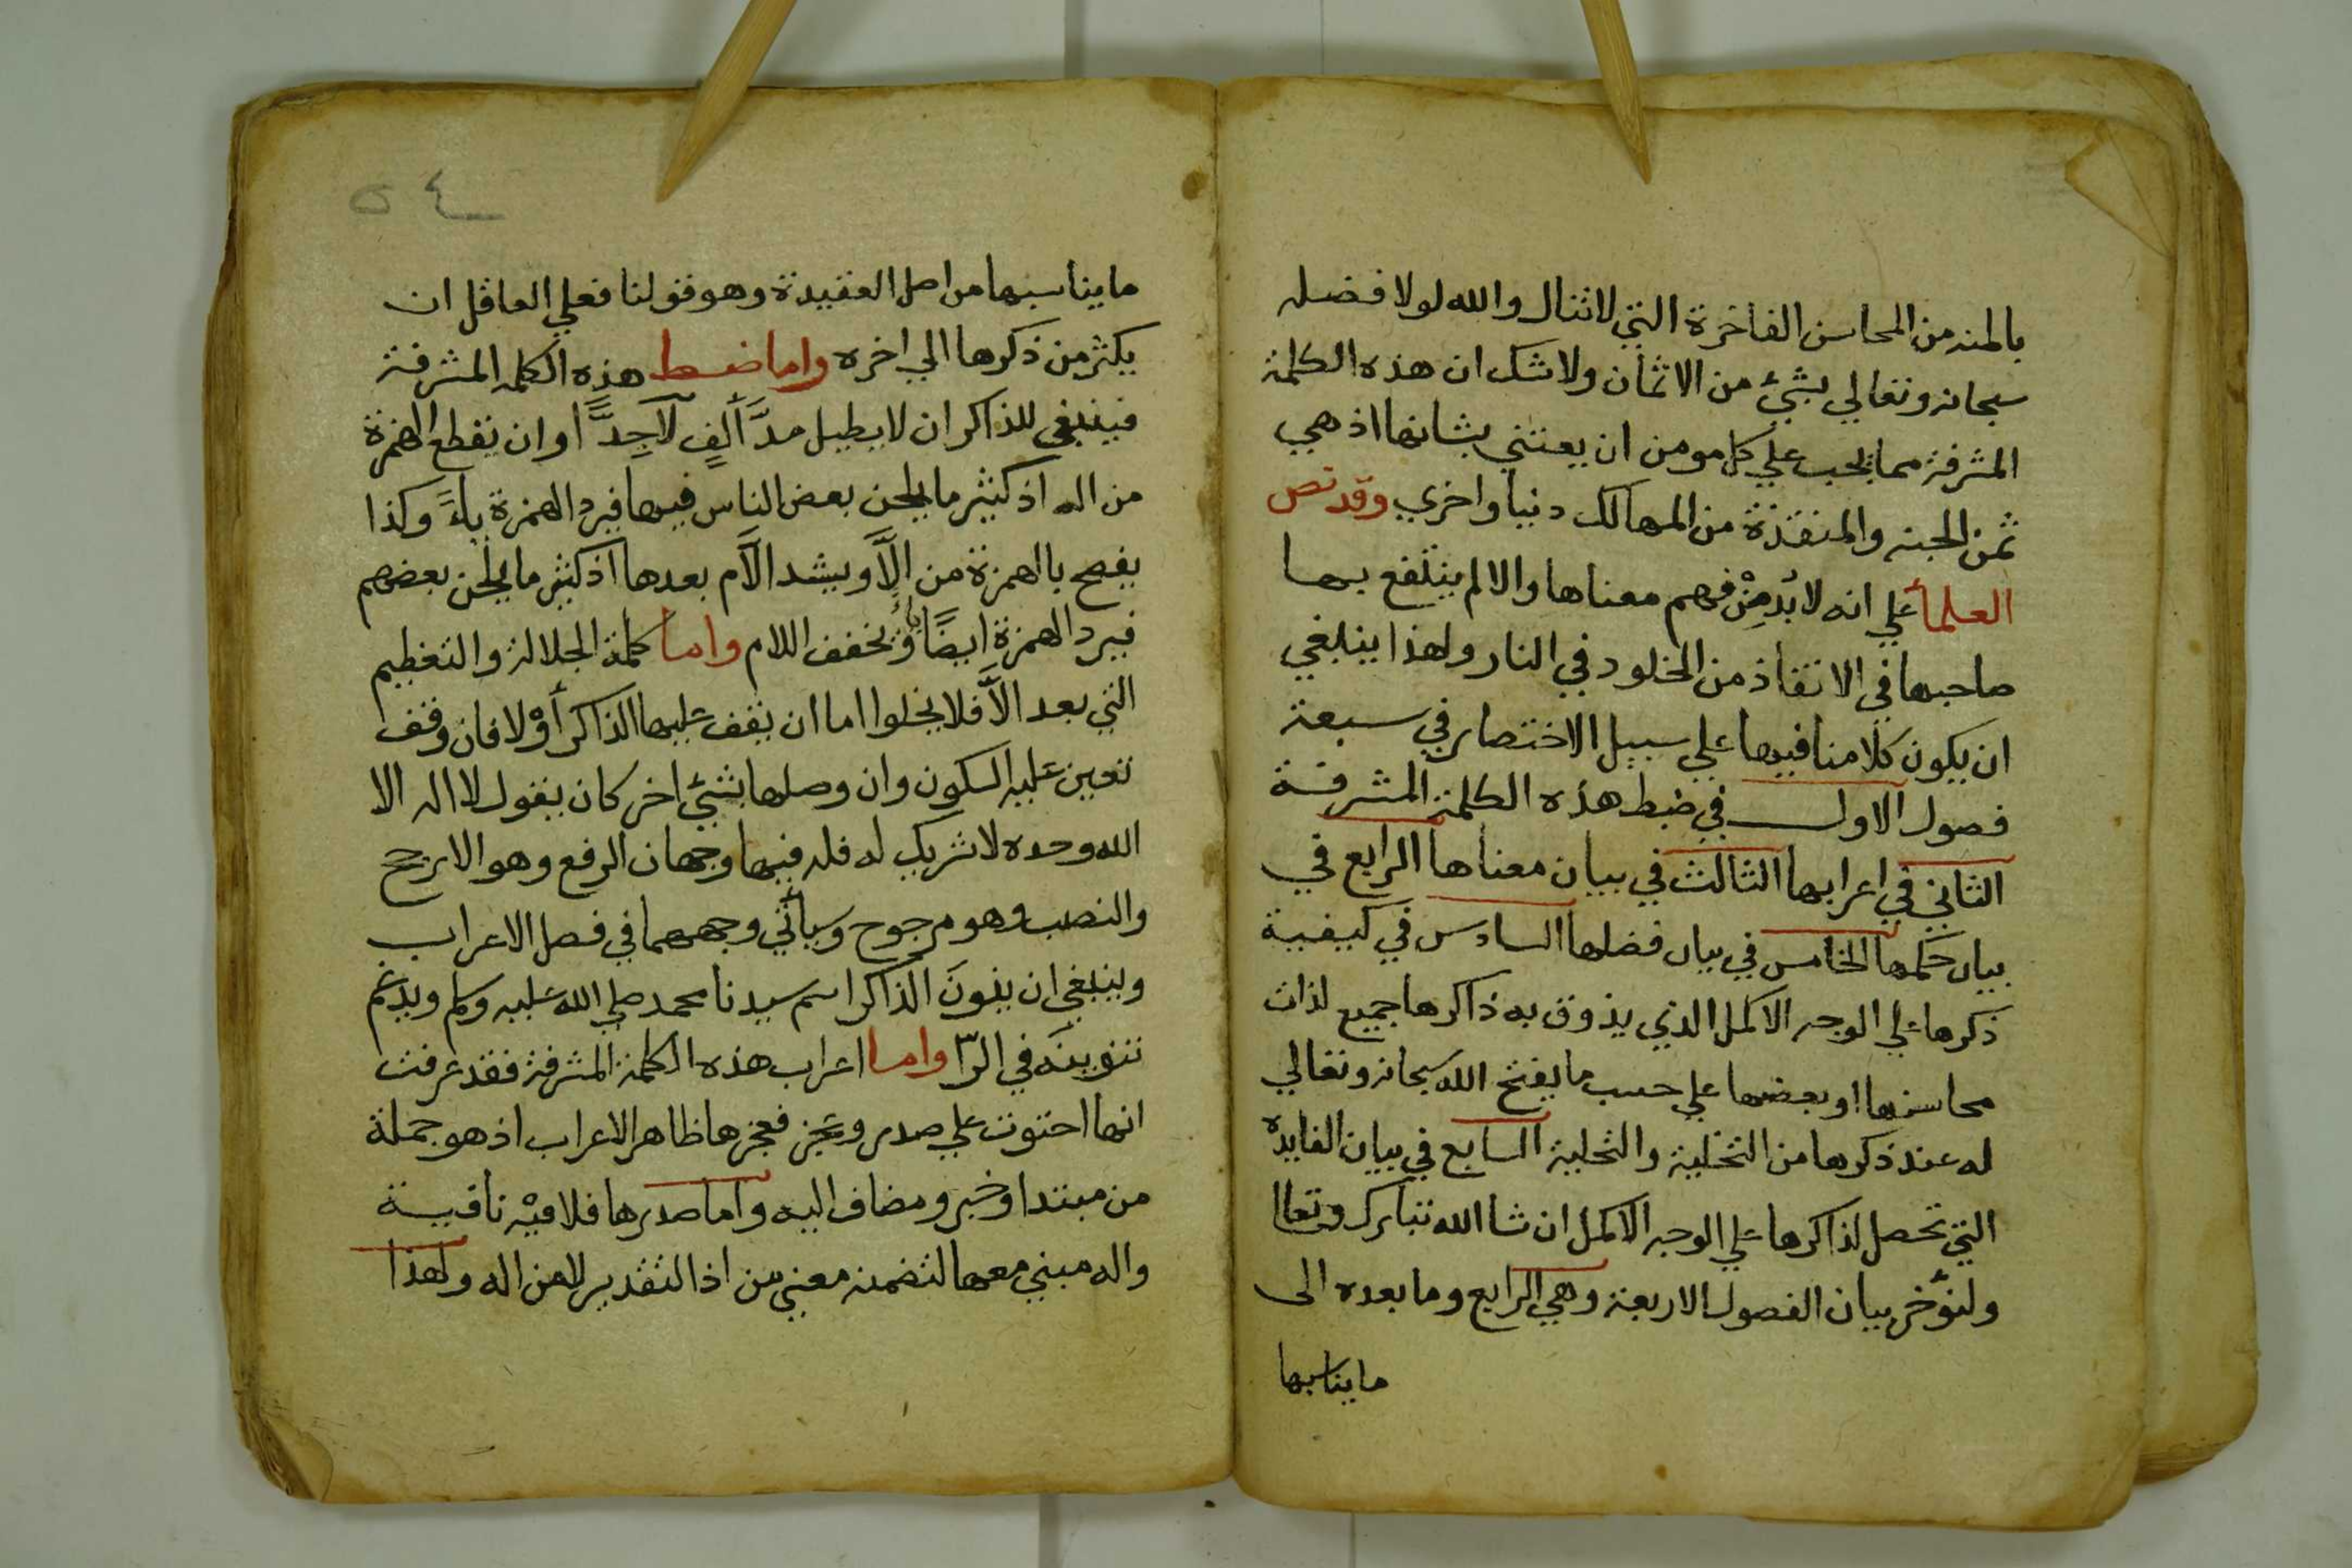 بالمنه من المحاسن الفاخرة التي لا تنال والله لولا فضله
سبحانه وتعالي بشيء من الاثمان ولا شك ان هذه الكلمة
المشرفة مما يجب علي كل مومن ان يعتني بشانها اذ هي
ثمن الجنه والمنقذة من المهالك دنيا واخري وقد نص
العلمأ علي انه لا بُد مِنْ فهم معناها والا لم ينتفع بها
صاحبها في الانقاذ من الخلود في النار ولهذا ينبغي
ان يكون كلامنا فيها علي سبيل الاختصار في سبعة
فصول الاول في ضبط هذه الكلمة المشرفة
الثاني في اعرابها الثالث في بيان معناها الرابع في
بيان حكمها الخامس في بيان فضلها السادس في كيفية
ذكرها علي الوجه الاكمل الذي يذوق به ذاكرها جميع لذات
محاسنها او بعضها علي حسب ما يفتح الله سبحانه وتعالي
له عند ذكرها من التخلية والتحلية السابع في بيان الفايده
التي تحصل لذاكرها علي الوجه الاكمل ان شا الله تبارك وتعالا
ولنؤخر بيان الفصول الاربعة وهي الرابع وما بعده الى
ما يناسبها
٥٤
ما يناسبها من اصل العقيدة وهو قولنا فعلي العاقل ان
يكثر من ذكرها الي اخره واما ضبط هذه الكلمه المشرفة
فينبغي للذاكر ان لا يطيل مدَّ ألفٍ لا جِدًّا وان يقطع الهمزة
من اله اذ كثير ما يلحن بعض الناس فيها فيرد الهمزة ياءً وكذا
يفصح بالهمزة من الاَّ ويشد الاَّم بعدها اذ كثير ما يلحن بعضهم
فيرد الهمزة ايضًا ياءً ويخفف اللام واما كلمة الجلالة والتعظيم
التي بعد الاَّ فلا يخلوا اما ان يقف عليها الذاكر أوْ لا فان وقف
تعين عليه السكون وان وصلها بشيء اخر كان يقول لا اله الا
الله وحده لا شريك له فله فيها وجهان الرفع وهو الارجح
والنصب وهو مرجوح وسيأتي وجههما في فصل الاعراب
وينبغي ان ينون الذاكر اسم سيدنا محمد صلي الله عليه وسلم ويدغم
تنوينَه في الرّا واما اعراب هذه الكلمة المشرفة فقد عرفت
انها احتوت علي صدر وعجز فعجزها ظاهر الاعراب اذ هو جملة
من مبتدا وخبر ومضاف اليه واما صدرها فلا فيْه نافية
واله مبني معها لتضمنه معني من اذ التقدير لا من اله ولهذا